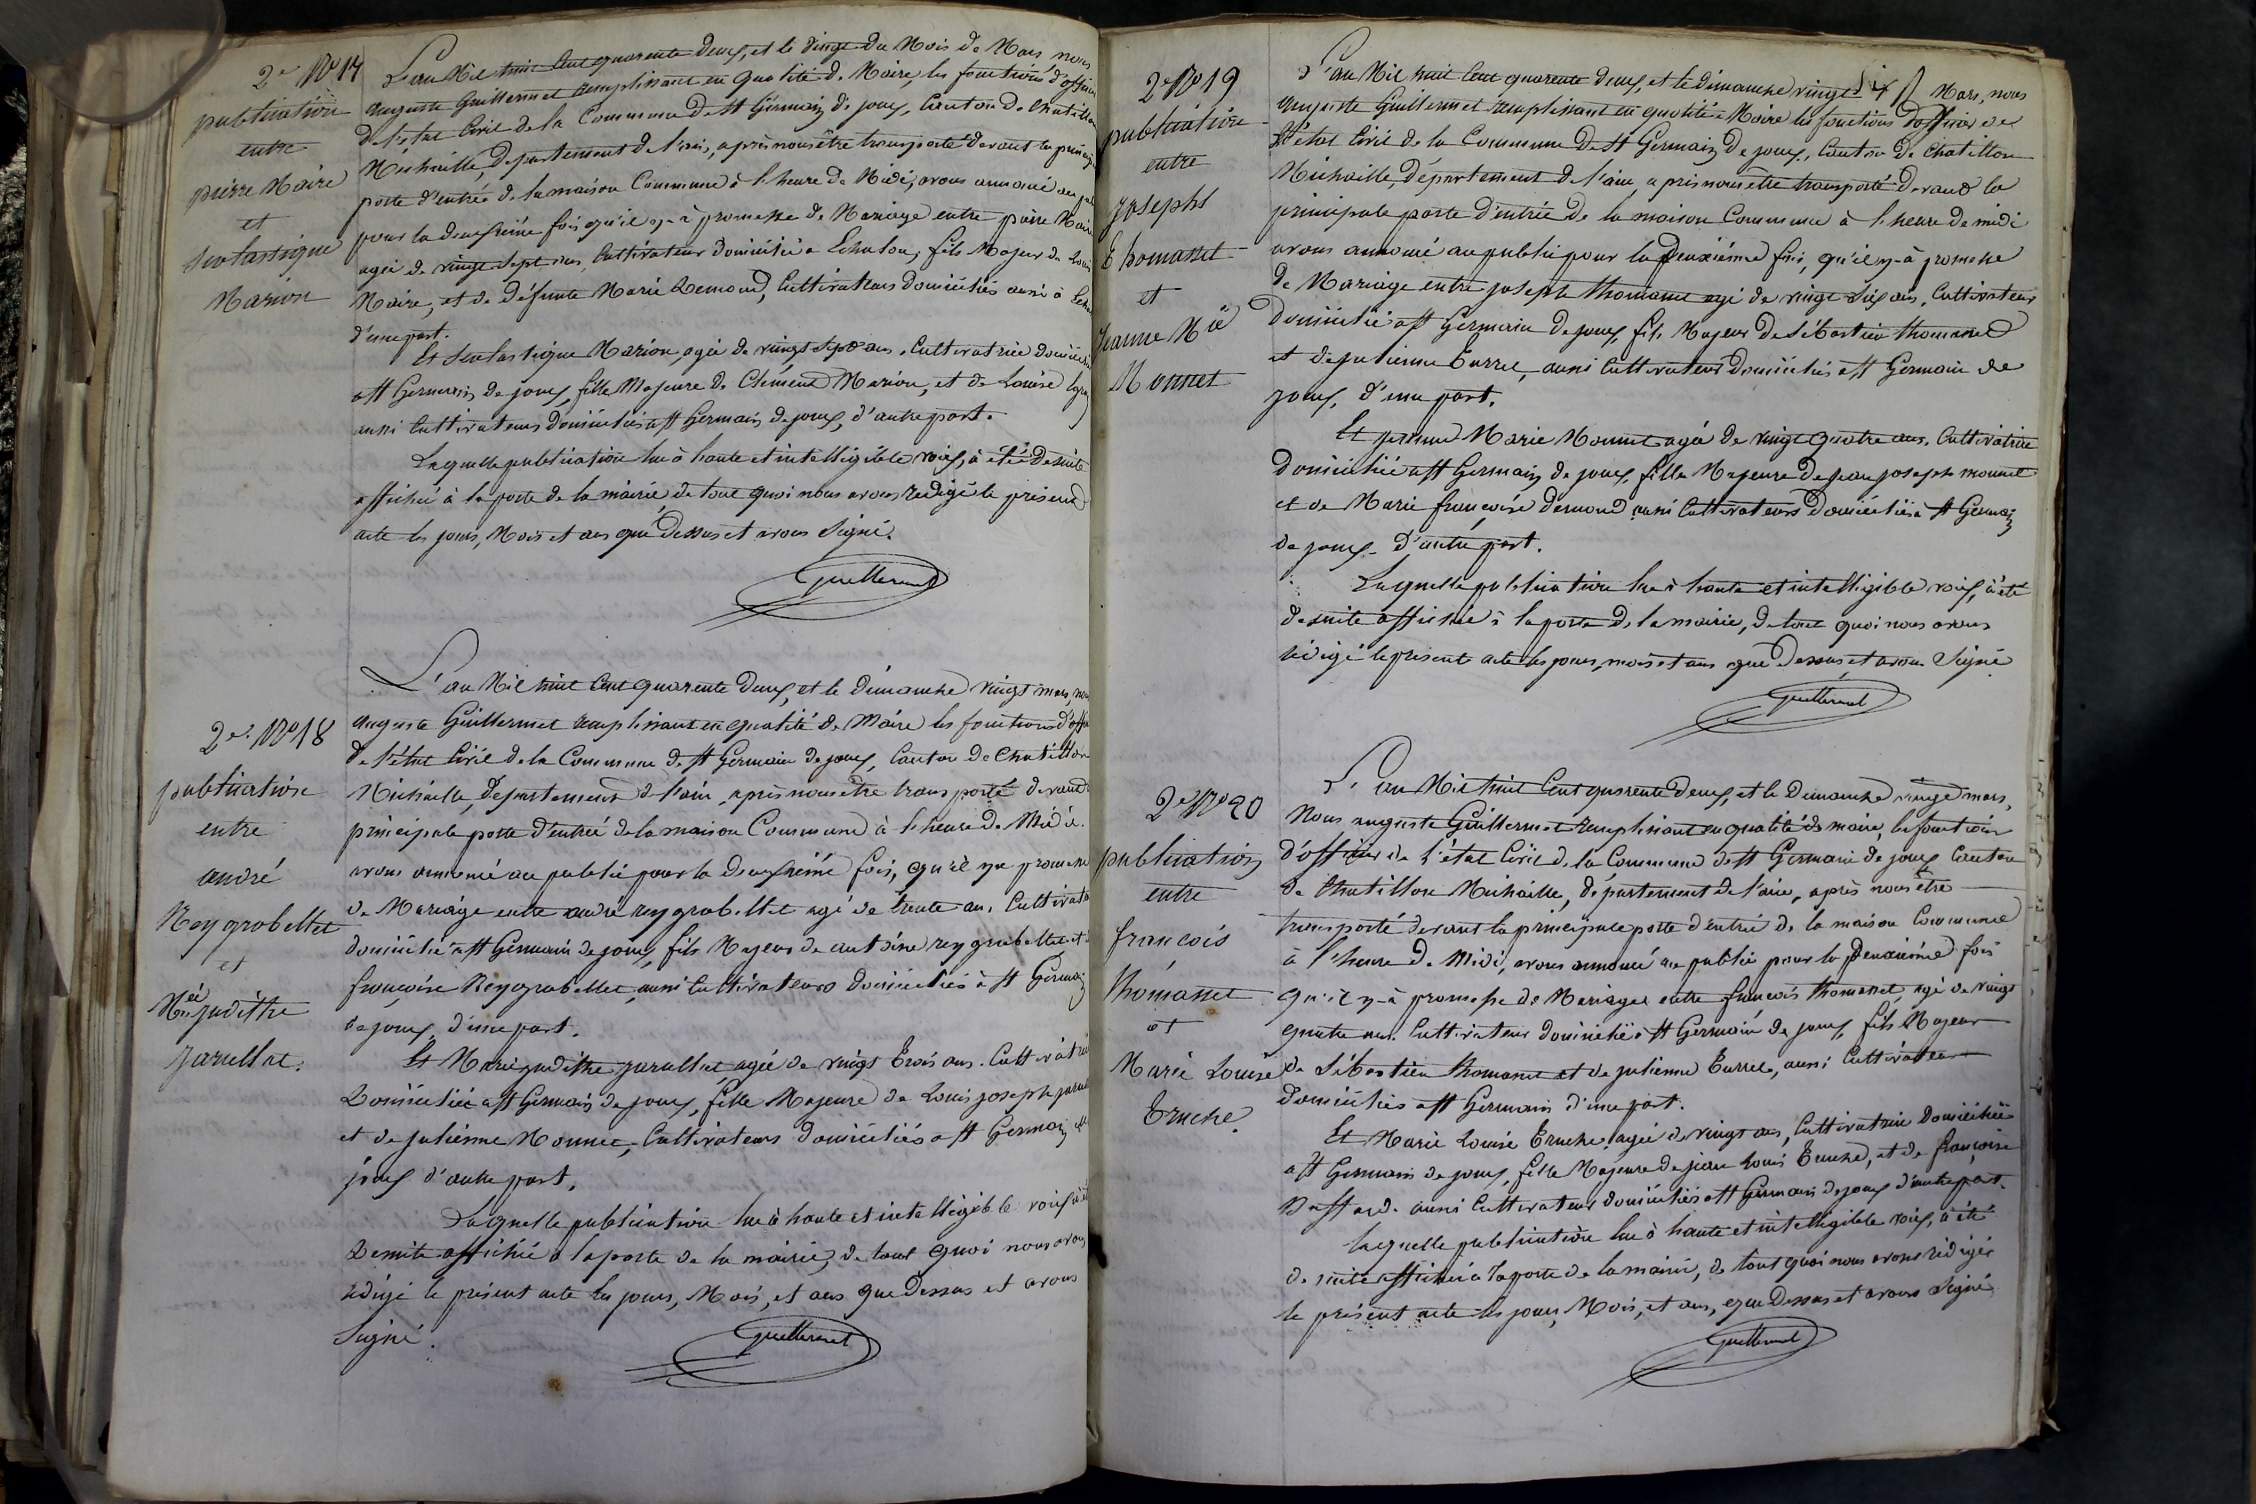 2e No 17
publication
entre
pierre Maire
et
Scolastique
Marion
L'an Mil huit Cent quarente deux, et le vingt du Mois de Mars nous
auguste Guillermet remplissant en qualité de Maire, les fonctions d'officier
de l'état Civil de la Commune de St Germain de joux, Canton de Chatillon
Michaille, département de l'ain, après nous être transporté devant la principale
porte d'entrée de la maison Commune à l'heure de Midi, avons annoncé au
pour la deuxième fois qu'il y-à promesse de Mariage entre pierre Maire
agé de vingt sept ans, Cultivateur domicilié à Echalon, fils Majeur de Louis
Maire, et de défunte Marie Demond, Cultivateurs domiciliés aussi à
d'une part.
Et Scolastique Marion, agée de vingt Sept ans, Cultivatrice domiciliée
à St Germain de joux, fille Majeure de Clément Marion, et de Louise
aussi Cultivateurs domiciliés à St Germain de joux, d'autre part.
Laquelle publication lue à haute et intelligible voix, à été de suite
affichée à la porte de la mairie, de tout quoi nous avons redigé le présent
acte les jours, Mois et ans que dessus et avons Signé.
Guillermet
2e No 18
publication
entre
andré
Rey grobellet
et
Mie judithe
jarullet.
L'an Mil huit Cent quarente deux, et le dimanche vingt mars, nous
auguste Guillermet remplissant en qualité de Maire les fonctions
de l'état Civil de la Commune de St Germain de joux, Canton de Chatillon
Michaille, département de l'ain, après nous être transporté devant
principale porte d'entrée de la maison Commune à l'heure de Midi
avons annoncé au public pour la deuxième fois, qu'il y a promesse
de Mariage entre andré rey grobellet agé de trente ans, Cultivateur
domicilié à St Germain de joux, fils Majeur de antoine rey grobellet et
françoise Rey grobellet, aussi Cultivateurs domiciliés à St Germain
de joux, d'une part.
Et Marie judithe jarullet agée de vingt trois ans. Cultivatrice
Domiciliée à St Germain de joux, fille Majeure de Louis joseph
et de julienne Monnet, Cultivateurs domiciliés à St Germain de
joux d'autre part.
Laquelle publication lue à haute et intelligible voix à été
De suite affichée à la porte de la mairie, de tout quoi nous avons
rédigé le présent acte les jours, Mois, et ans que Dessus et avons
Signé.
Guillermet
2e No 19
publication
entre
josephs
Thomasset
et
jeanne Mie
Monnet
L'an Mil huit Cent quarente deux, et le dimanche vingt Mars, nous
auguste Guillermet remplissant en qualité Maire les fonctions d'officier de
l'état Civil de la Commune de St Germain de joux, Canton de Chatillon
Michaille, département de l'ain, après nous être transporté devant la
principale porte d'entrée de la maison Commune à l'heure de midi
avons annoncé au public pour la deuxième fois, qu'il y-à promesse
de Mariage entre joseph thomasset agé de vingt Six ans, Cultivateur
domicilié à St Germain de joux, fils Majeur de Sébastien thomasset
et de julienne Burre, aussi Cultivateurs domiciliés à St Germain de
joux, d'une part.
Et jeanne Marie Monnet agée de vingt quatre ans, Cultivatrice
domiciliée à St Germain de joux, fille Majeure de jean joseph monnet
et de Marie françoise demond aussi Cultivateurs domiciliés à St Germain
de joux d'autre part.
Laquelle publication lue à haute et intelligible voix, à été
de suite affichée à la porte de la mairie, de tout quoi nous avons
rédigé le présente acte les jours, mois et ans que dessus et avons Signé
Guillermet
2e No 20
publication
entre
francois
thomasset
et
Marie Louise
Truche.
L'an Mil huit Cent quarente deux, et le Dimanche vingt mars,
Nous auguste Guillermet remplissant en qualité de maire, les fonctions
d'officier de l'état Civil de la Commune de St Germain de joux Canton
de Chatillon Michaille, département de l'ain, après nous être
transporté devant la principale porte d'entrée de la maison Commune
à l'heure de Midi, avons annoncé au public pour la deuxième fois
qu'il y-à promesse de Mariage entre francois thomasset, agé de vingt
quatre ans. Cultivateur domicilié à St Germain de joux, fils Majeur
de Sébastien thomasset et de julienne Burre, aussi Cultivateurs
domiciliés à St Germain d'une part.
Et Marie Louise Truche, agée de vingt ans, Cultivatrice Domiciliée
à St Germain de joux, fille Majeure de jean Louis Truche, et de françoise
aussi Cultivateurs domiciliés à St Germain de joux d'autre part.
laquelle publication lue à haute et intelligible voix, à été
de suite affichée à la porte de la mairie, de tout quoi nous avons rédigé
le présent acte les jours, Mois, et ans, que Dessus et avons Signé
Guillermet